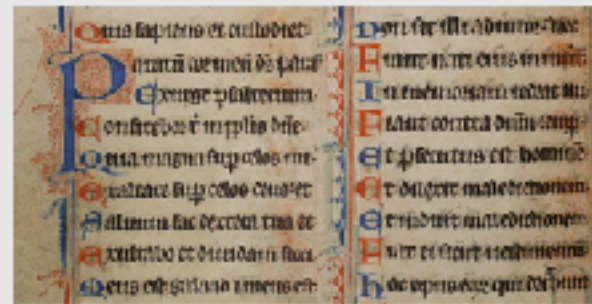 Quis sapiens et custodiet
Paratū cor meū ds parat
Exurge psalterium
Confitebor t in pplis dñe
Quia magna sup celos mi
Exaltare sup celos deus et
Saluum fac dextera tua et
Exultabo et diuidam sici
Meus est galaad et meus est
Non sit illi adiutor nec
Fiant nati eius in
In memoriam redeat ini
Fiant contra dnm semp
Et psecutus est hominē
Et dilexit maledictionem
Et induit maledictionem
Fiat ei sicut uestimentū
hoc opus eorum qui